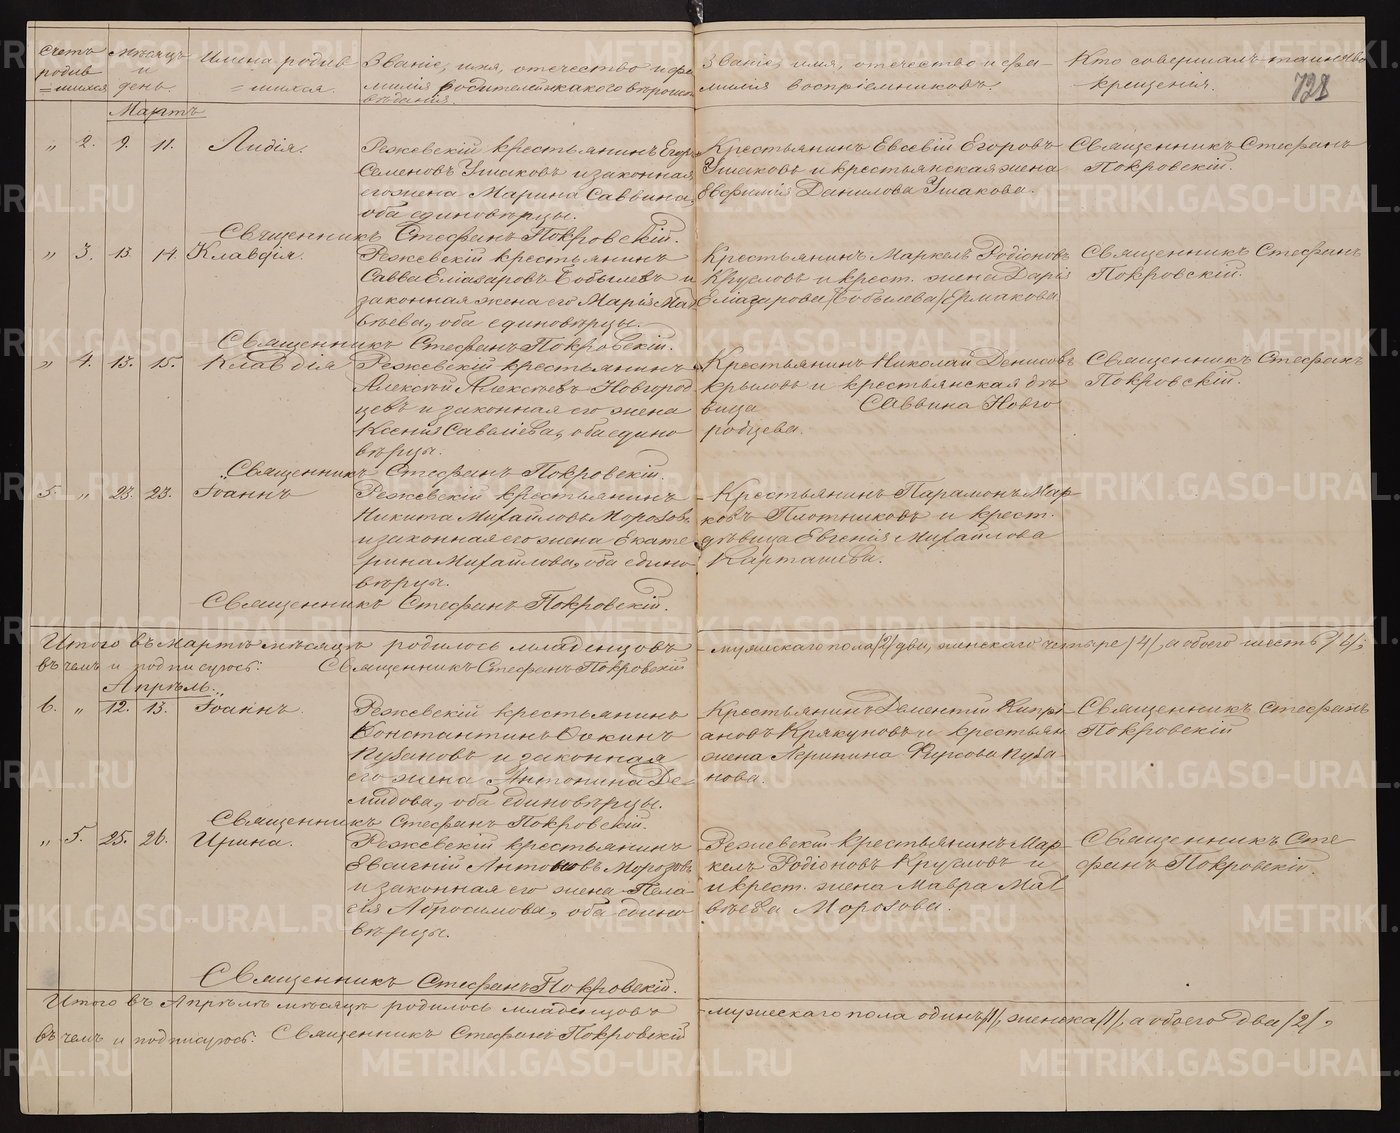 Счетъ родив=шихся
Мѣсяцъ и день.
Имена родив=шихся.
Званіе, имя, отечество и фа-
милія родителей и какого вѣроис-
вѣданія.
Званіе, имя, отечество и фа-
милія воспріемниковъ.
Кто совершалъ таинство
крещенія.
728
Мартъ
„ 2. 9. 11. Лидія.
Режевскій крестьянинъ Егоръ
Семеновъ Ушаковъ и законная
его жена Марина Саввина,
оба единовѣрцы.
Крестьянинъ Евсевій Егоровъ
Ушаковъ и крестьянская жена
Евфимія Данилова Ушакова.
Священникъ Стефанъ
Покровскій.
Священникъ Стефанъ Покровскій.
„ 3. 13. 14. Клавдія.
Режевскій крестьянинъ
Савва Елиазаровъ Бобылевъ и
законная жена его Марія Мат
вѣева, оба единовѣрцы.
Крестьянинъ Маркелъ Родіоновъ
Кругловъ и крест. жена Дарія
Еліазарова /Бобылева/ Ермакова
Священникъ Стефанъ
Покровскій.
Священникъ Стефанъ Покровскій.
„ 4. 13. 15. Клавдія
Режевскій крестьянинъ
Алексѣй Алексѣевъ Новгород
цевъ и законная его жена
Ксенія Савельева, оба едино
вѣрцы.
Крестьянинъ Николай Денисовъ
Крыловъ и крестьянская дѣ
вица Саввина Новго
родцева.
Священникъ Стефанъ
Покровскій.
Священникъ Стефанъ Покровскій.
5. „ 23. 23. Іоаннъ
Режевскій крестьянинъ
Никита Михайловъ Морозовъ
и законная его жена Екате
рина Михайлова, оба едино
вѣрцы.
Крестьянинъ Парамонъ Мар-
ковъ Плотниковъ и крест.
дѣвица Евгенія Михайлова
Карташева.
Священникъ Стефанъ Покровскій.
Итого въ Мартѣ мѣсяцѣ родилось младенцовъ
мужскаго пола /2/ два, женскаго четыре /4/, а обоего шесть /6/;
въ чемъ и подписуюсь: Священникъ Стефанъ Покровскій
Апрѣль.
6. „ 12. 13. Іоаннъ.
Режевскій крестьянинъ
Константинъ Фокинъ
Кузановъ и законная
его жена Антонина Де
мидова, оба единовѣрцы.
Крестьянинъ Дементій Кипрі
ановъ Крякуновъ и крестьян
жена Агрипина Фирсова Куза
нова.
Священникъ Стефанъ
Покровскій
Священникъ Стефанъ Покровскій.
„ 5. 25. 26. Ирина.
Режевскій крестьянинъ
Евгеній Антоновъ Морозовъ
и законная его жена Пела-
гія Абросимова, оба едино
вѣрцы.
Режевскій крестьянинъ Мар-
келъ Родіоновъ Кругловъ и
и крест. жена Мавра Мат
вѣева Морозова.
Священникъ Сте
фанъ Покровскій.
Священникъ Стефанъ Покровскій.
Итого въ Апрѣлѣ мѣсяцѣ родилось младенцовъ
мужескаго пола одинъ /1/, женска /1/, а обоего два /2/,
въ чемъ и подписуюсь: Священникъ Стефанъ Покровскій